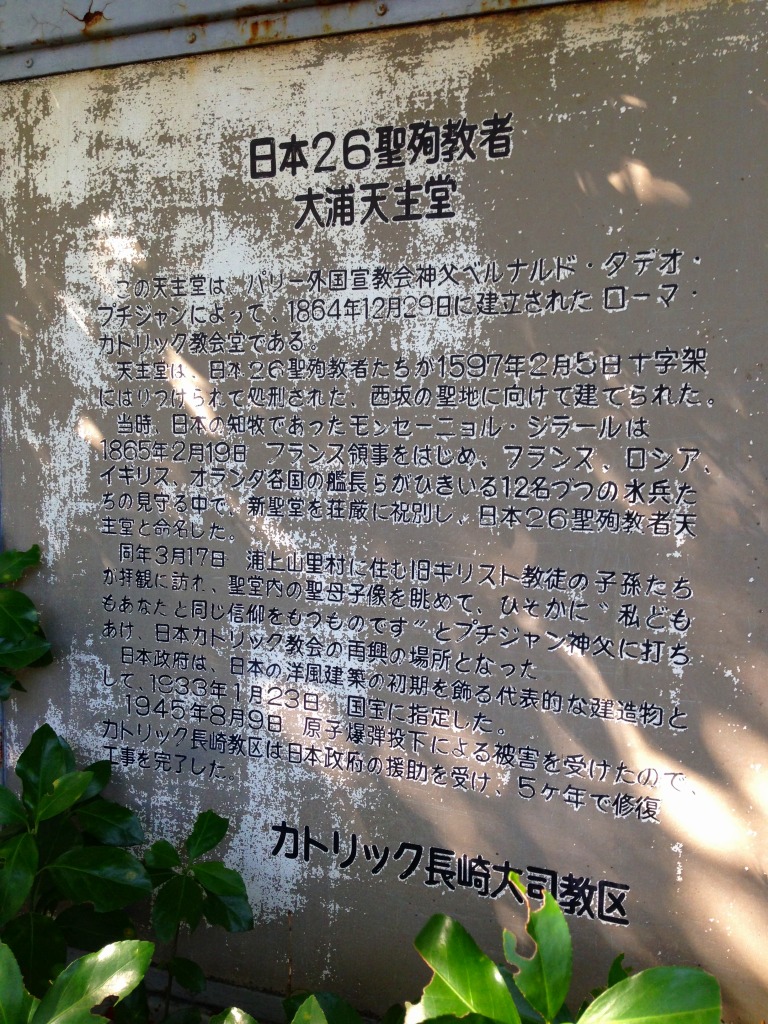 日本26聖殉教者
大浦天主堂
この天主堂は、パリー外国宣教会神父ベルナルド・タデオ・
プチジャンによって、1864年12月29日に建立された ローマ・
カトリック教会堂である。
天主堂は、日本26聖殉教者たちが1597年2月5日十字架
にはりつけられて処刑された、西坂の聖地に向けて建てられた。
当時、日本の知牧であったモンセーニョル・ジラールは
1865年2月19日 フランス領事をはじめ、フランス、ロシア、
イギリス、オランダ各国の艦長らがひきいる12名づつの水兵た
ちの見守る中で、新聖堂を荘厳に祝別し、日本26聖殉教者天
主堂と命名した。
同年3月17日 浦上山里村に住む旧キリスト教徒の子孫たち
が拝観に訪れ、聖堂内の聖母子像を眺めて、ひそかに〝私ども
もあなたと同じ信仰をもつものです〟とプチジャン神父に打ち
あけ、日本カトリック教会の再興の場所となった
日本政府は、日本の洋風建築の初期を飾る代表的な建造物と
して、1933年1月23日 国宝に指定した。
1945年8月9日 原子爆弾投下による被害を受けたので、
カトリック長崎教区は日本政府の援助を受け、5ヶ年で修復
工事を完了した。
カトリック長崎大司教区